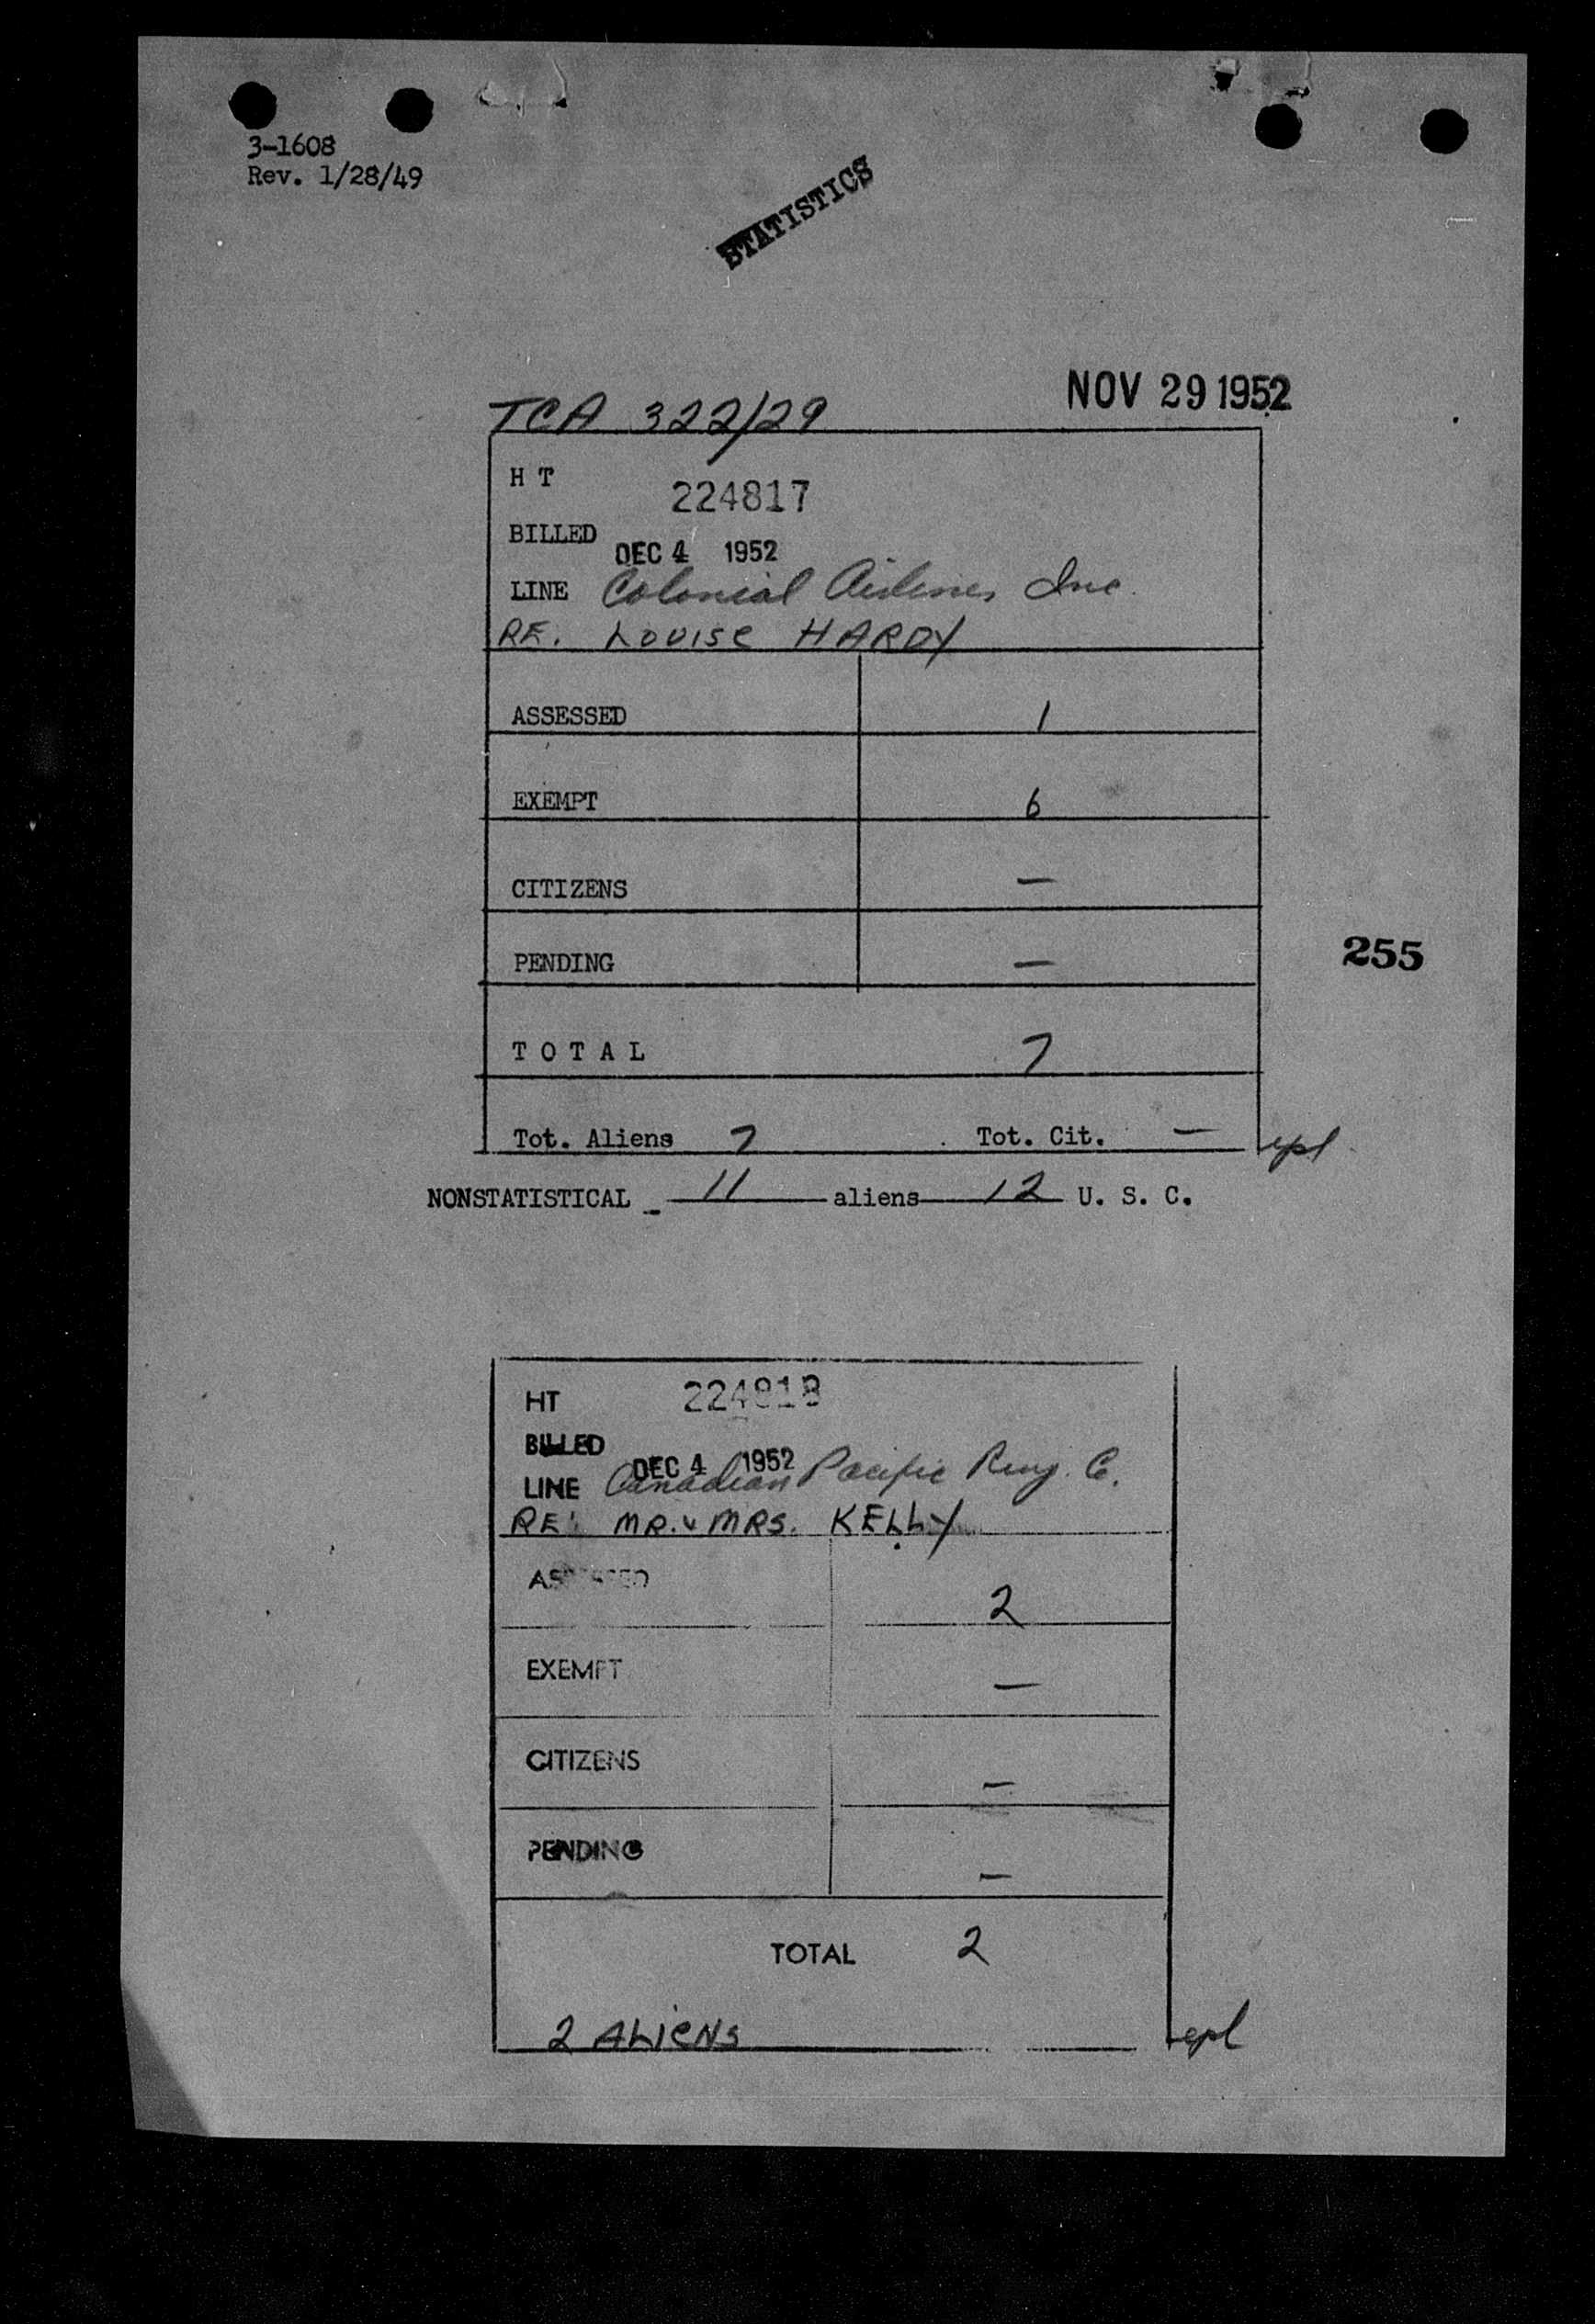 3-1608
Rev. 1/28/49
STATISTICS
NOV 29 1952
TCA 322/29
H T 224817
BILLED DEC 4 1952
LINE Colonial Airlines Inc.
RE. Louise HARDY
ASSESSED 1
EXEMPT 6
CITIZENS —
PENDING —
255
T O T A L 7
Tot. Aliens 7 Tot. Cit. —
epl
NONSTATISTICAL 11 aliens 12 U. S. C.
HT 224818
BILLED DEC 4 1952
LINE Canadian Pacific Rwy. Co.
RE: MR. & MRS. KELLY
ASSESSED 2
EXEMPT —
CITIZENS —
PENDING —
TOTAL 2
2 ALiENS
epl